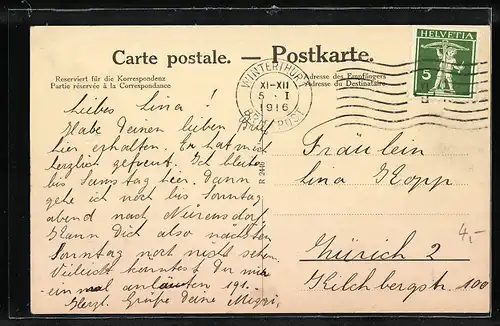 Carte postale. — Postkarte.
Reserviert für die Korrespondenz
Partie réservée à la Correspondance
Adresse des Empfängers
Adresse du Destinataire
HELVETIA
5
WINTERTHUR
XI-XII
5. I
1916
BRIEFPOST
R 2446
Liebes Lina!
Habe Deinen lieben Brief
hier erhalten. Er hat mich
herzlich gefreut. Ich bleibe
bis Samstag hier. Dann
gehe ich noch bis Sonntag
abend nach Nürensdorf.
Kann Dich also nächsten
Sonntag noch nicht sehen.
Vielleicht könntest Du mir
einmal anläuten 191.
Herzl. Grüße Deine
Fräulein
Lina Kopp
Zürich 2
Kilchbergstr. 100
4.-